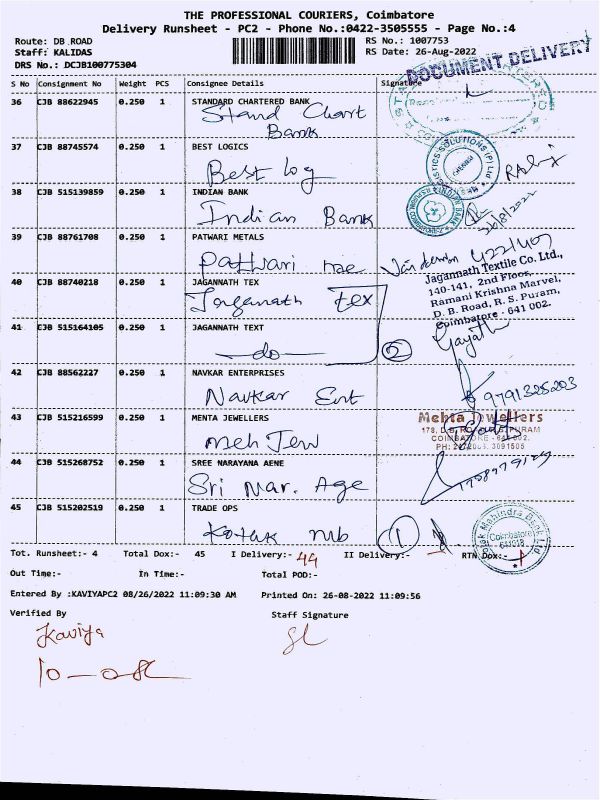 THE PROFESSIONAL COURIERS, Coimbatore
Delivery Runsheet - PC2 - Phone No.:0422-3505555 - Page No.:4
Route: DB ROAD
RS No.: 1007753
Staff: KALIDAS
RS Date: 26-Aug-2022
DRS No.: DCJB100775304
DOCUMENT DELIVERY
S No Consignment No Weight PCS Consignee Details Signature
36 CJB 88622945 0.250 1 STANDARD CHARTERED BANK
Stand Chart
Bank
37 CJB 88745574 0.250 1 BEST LOGICS
Best Log
38 CJB 515139859 0.250 1 INDIAN BANK
Indian Bank
26/8/2022
39 CJB 88761708 0.250 1 PATWARI METALS
Pathwari
40 CJB 88740218 0.250 1 JAGANNATH TEX
Jagannath Tex
Jagannath Textile Co. Ltd.,
140-141, 2nd Floor,
Ramani Krishna Marvel,
D. B. Road, R. S. Puram,
Coimbatore - 641 002.
41 CJB 515164105 0.250 1 JAGANNATH TEXT
-do-
2
Gayath
42 CJB 88562227 0.250 1 NAVKAR ENTERPRISES
Navkar Ent
43 CJB 515216599 0.250 1 MENTA JEWELLERS
Meh Jew
Mehta Jewellers
44 CJB 515268752 0.250 1 SREE NARAYANA AENE
Sri Nar. Age
45 CJB 515202519 0.250 1 TRADE OPS
Kotak Mb
1
Kotak Mahindra Bank Ltd.
Coimbatore
641018
Tot. Runsheet:- 4 Total Dox:- 45 I Delivery:- 44 II Delivery:- RTN Dox:- 1
Out Time:- In Time:- Total POD:-
Entered By :KAVIYAPC2 08/26/2022 11:09:30 AM Printed On: 26-08-2022 11:09:56
Verified By Staff Signature
Kaviya